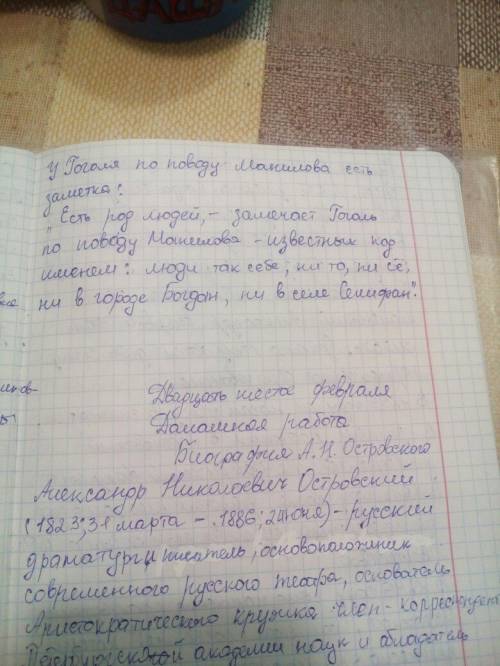 У Гоголя по поводу Манилова есть
заметка:
"Есть род людей,- замечает Гоголь
по поводу Манилова - известных под
именем: люди так себе, ни то, ни сё,
ни в городе Богдан, ни в селе Селифан".
Двадцать шестое февраля
Домашная работа
Биография А.Н. Островского
Александр Николаевич Островский
(1823; 31 марта - 1886; 2 июня) - русский
драматург и писатель, основоположник
современного русского театра, основатель
Аристократического кружка член-корреспондент
Петербургской академии наук и обладатель